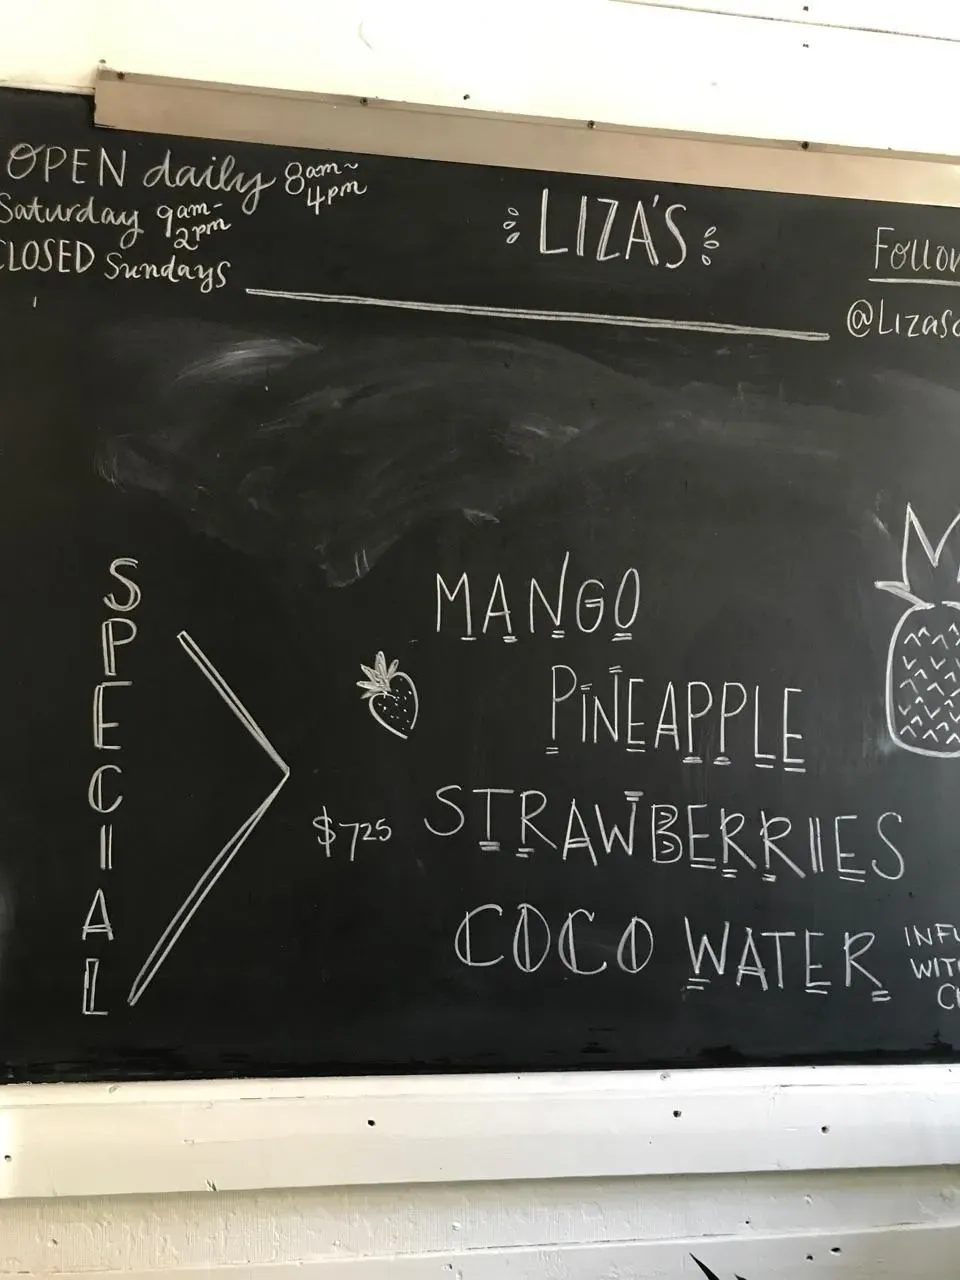 OPEN daily 8am~
4pm
Saturday 9am-
2pm
CLOSED Sundays
LIZA'S
S
P
E
C
I
A
L
MANGO
PINEAPPLE
$7.25 STRAWBERRIES
COCO WATER